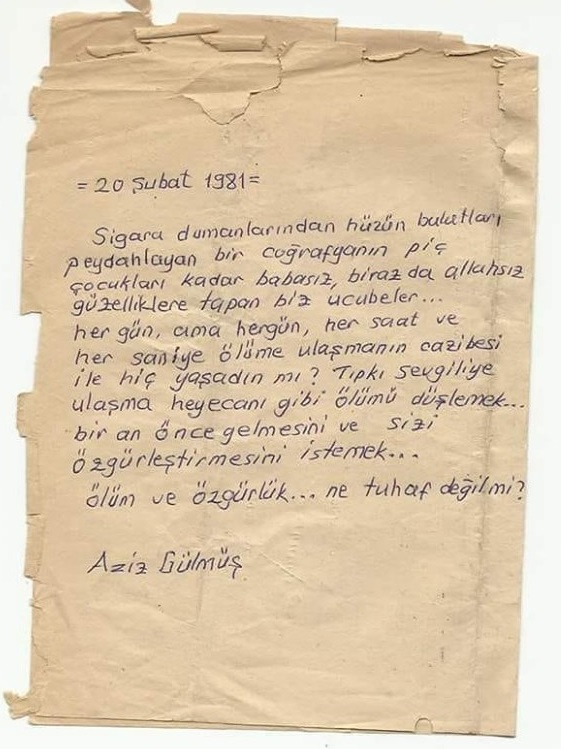 = 20 Şubat 1981 =
Sigara dumanlarından hüzün bulutları
peydahlayan bir coğrafyanın piç
çocukları kadar babasız, biraz da allahsız
güzelliklere tapan biz ucubeler...
her gün, ama hergün, her saat ve
her saniye ölüme ulaşmanın cazibesi
ile hiç yaşadın mı? Tıpkı sevgiliye
ulaşma heyecanı gibi ölümü düşlemek...
bir an önce gelmesini ve sizi
özgürleştirmesini istemek...
ölüm ve özgürlük... ne tuhaf değilmi?
Aziz Gülmüş